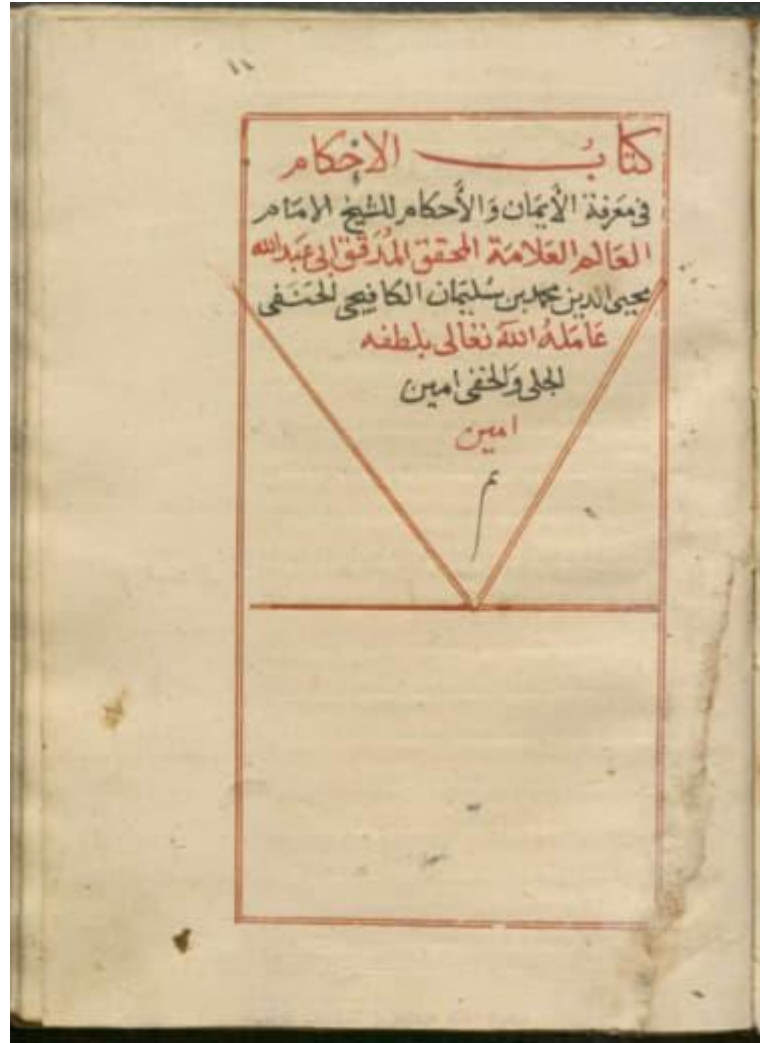 ١١
كتاب الاحكام
في معرفة الأيمان والأحكام للشيخ الامام
العالم العلامة المحقق المُدقق ابي عبدالله
محيي الدين محمد بن سُليمان الكافيجي الحنفي
عَامَلهُ اللهُ تعالى بلطفه
الجلي والخفي امين
امين
تم